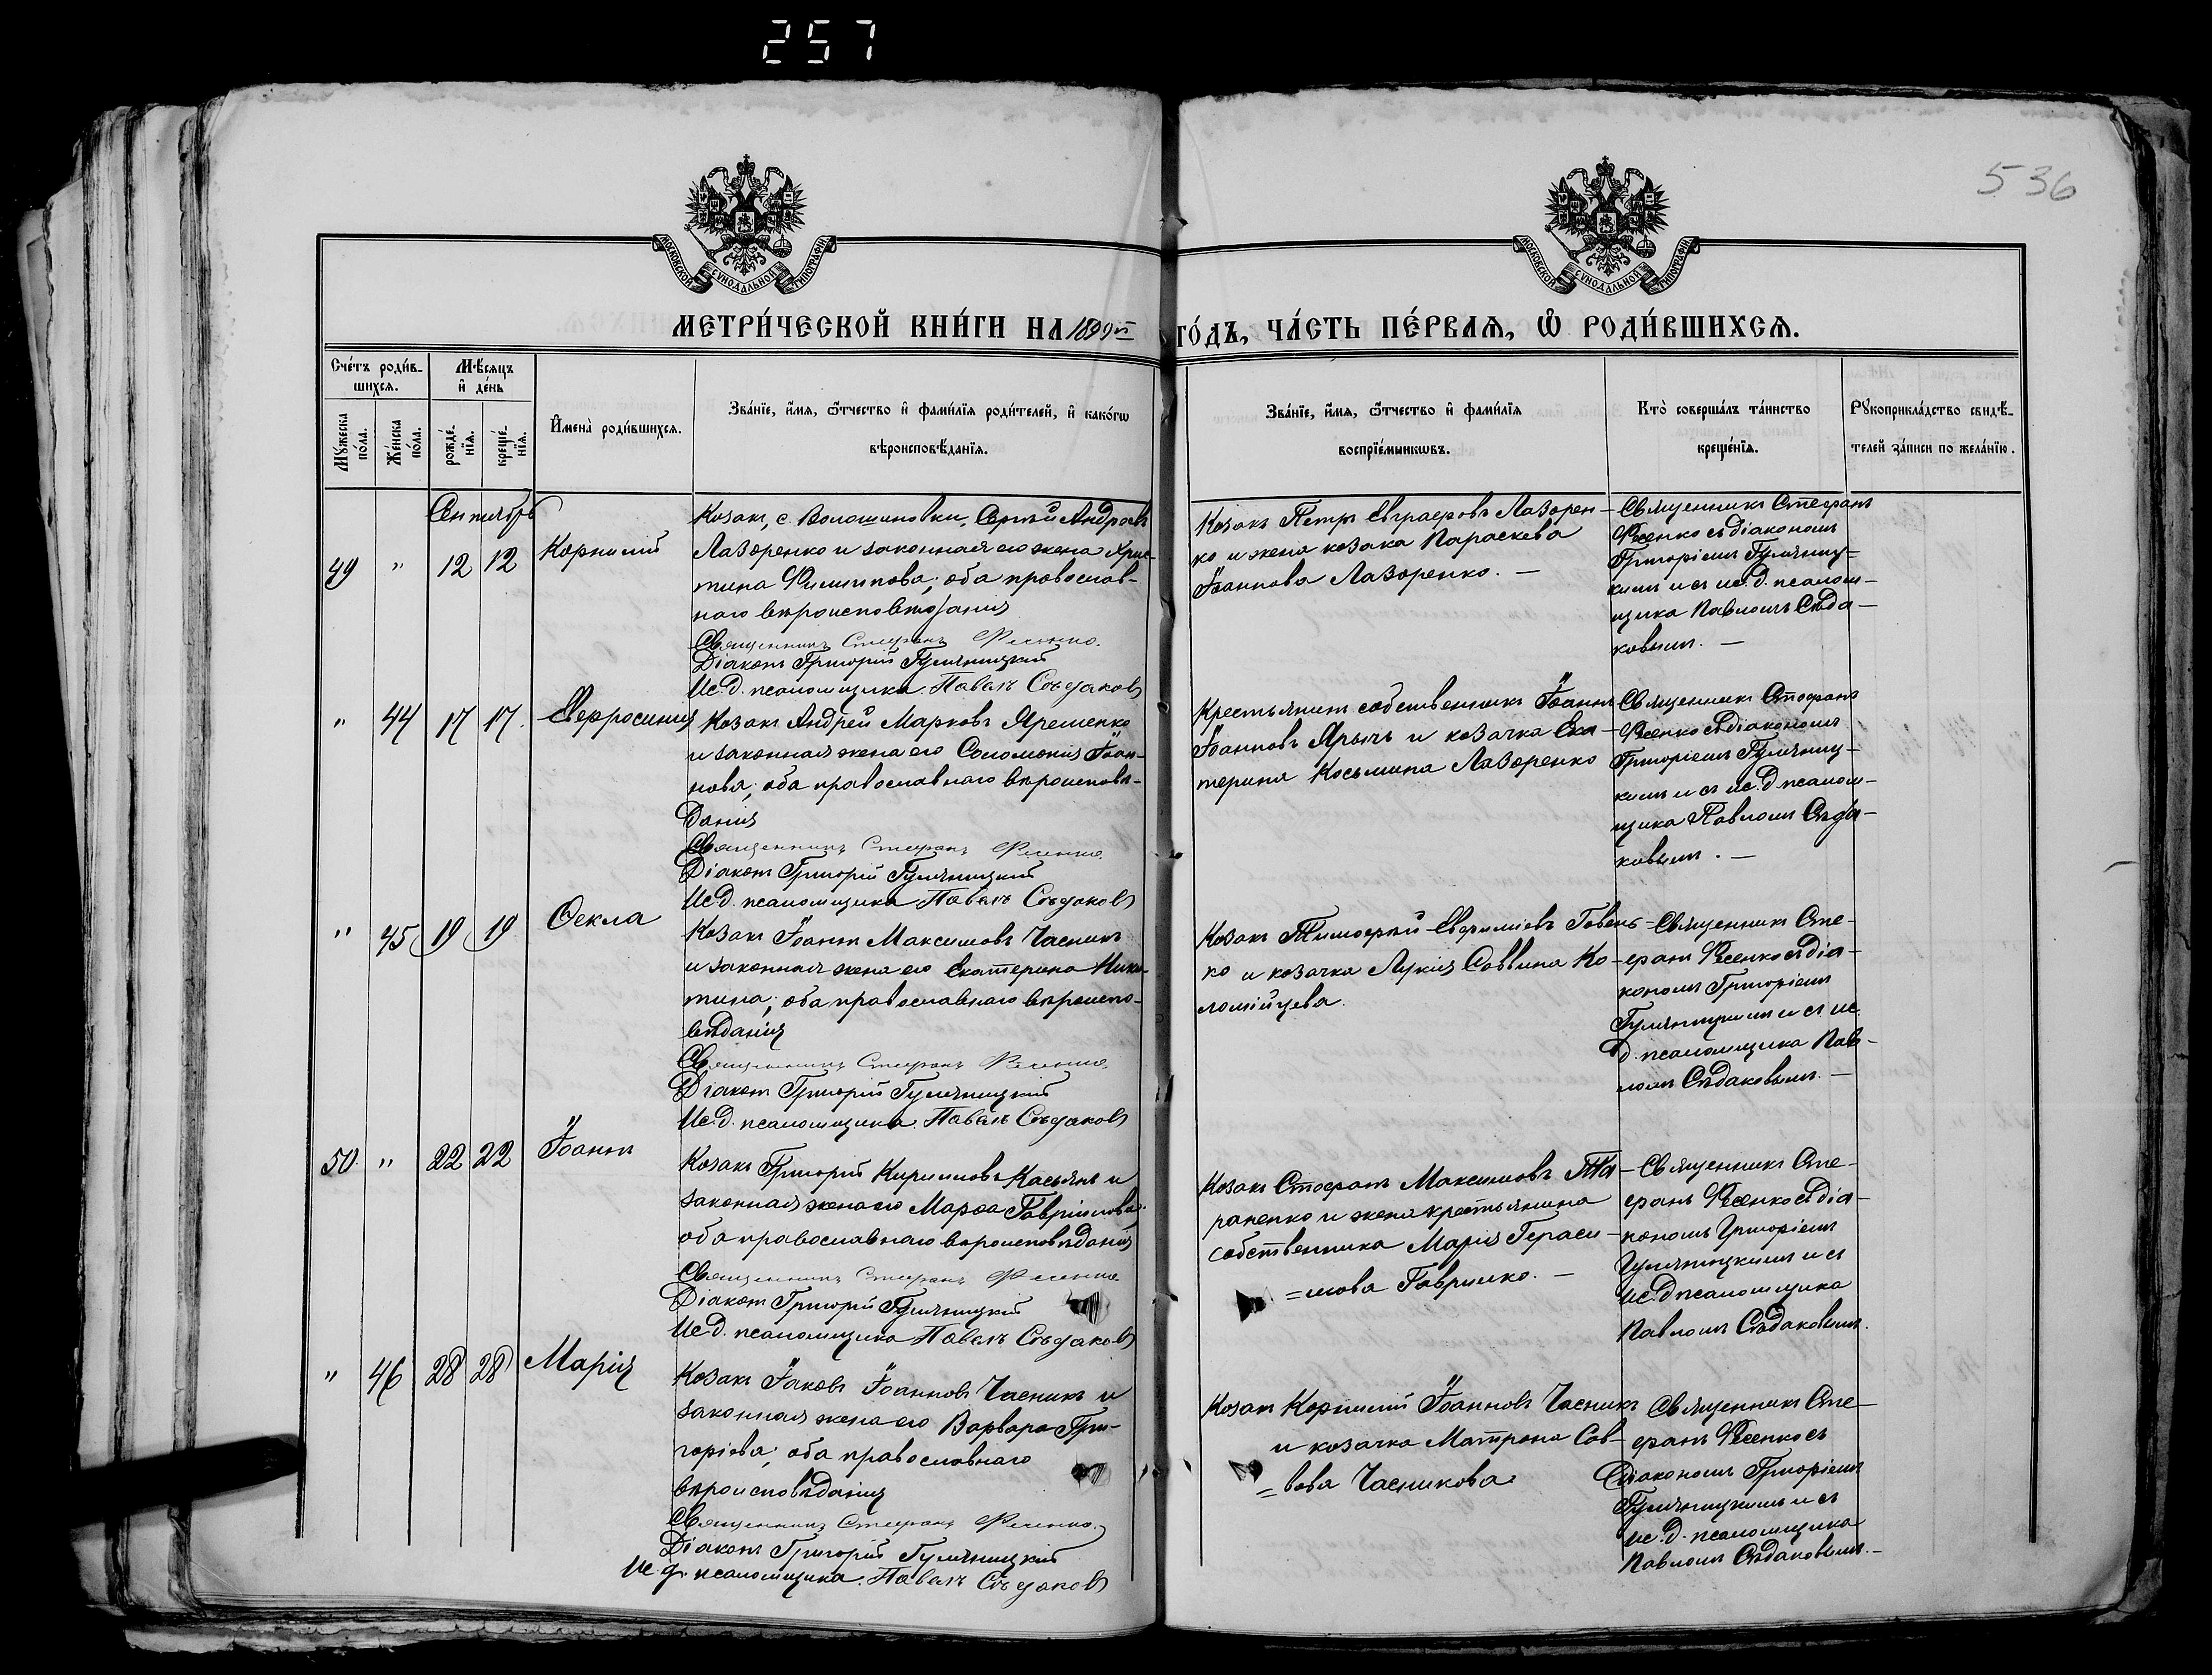 257
536
МОСКОВСКОЙ СѴНОДАЛЬНОЙ ТИПОГРАФІИ
МОСКОВСКОЙ СѴНОДАЛЬНОЙ ТИПОГРАФІИ
МЕТРИ́ЧЕСКОЙ КНИ́ГИ НА 1899й ГО́ДЪ, ЧА́СТЬ ПЕ́РВАѦ, Ѡ҆ РОДИ́ВШИХСѦ.
Сче́тъ роди́в-
шихся.
Мꙋ́жеска по́ла.
Же́нска по́ла.
Мѣ́сяцъ
и҆ де́нь
рожде́-
нїя.
креще́-
нїя.
И҆мена̀ роди́вшихся.
Зва́нїе, и҆́мя, ѻ҆́тчество и҆ фами́лїя роди́телей, и҆ како́гѡ
вѣроисповѣ́данїя.
Зва́нїе, и҆́мя, ѻ҆́тчество и҆ фами́лїя
воспрїе́мникѡвъ.
Кто̀ соверша́лъ та́инство
креще́нїя.
Рꙋкоприкла́дство свидѣ́-
телей за́писи по жела́нїю.
Сентябрь
49 " 12 12 Корнилій
Козакъ, с. Волошиновки, Сергѣй Андреевъ
Лазоренко и законная его жена Хрис-
тина Филиппова; оба православ-
наго вѣроисповѣданія
Священникъ Стефанъ Фесенко.
Діаконъ Григорій Гулячницкій
Ис. д. псаломщика Павелъ Сѣдаковъ
Козакъ Петръ Евграфовъ Лазорен-
ко и жена козака Параскева
Іоаннова Лазоренко. —
Священникъ Стефанъ
Фесенко съ діакономъ
Григоріемъ Гулячниц=
кимъ и съ ис. д. псалом-
щика Павломъ Сѣда-
ковымъ. —
" 44 17 17. Евфросинія
Козакъ Андрей Марковъ Ярешенко
и законная жена его Соломонія Іоан-
нова; оба православнаго вѣроисповѣ-
данія
Священникъ Стефанъ Фесенко.
Діаконъ Григорій Гулячницкій
Ис. д. псаломщика Павелъ Сѣдаковъ
Крестьянинъ собственникъ Іоаннъ
Іоанновъ Ярышъ и козачка Ека-
терина Косьмина Лазоренко
Священникъ Стефанъ
Фесенко съ діакономъ
Григоріемъ Гулячниц-
кимъ и съ ис. д. псалом-
щика Павломъ Сѣда-
ковымъ. —
" 45 19 19 Ѳекла
Козакъ Іоаннъ Максимовъ Часникъ
и законная жена его Екатерина Ники-
тина; оба православнаго вѣроиспо-
вѣданія
Священникъ Стефанъ Фесенко.
Діаконъ Григорій Гулячницкій
Ис. д. псаломщика Павелъ Сѣдаковъ
Козакъ Тимоѳей Евфиміевъ Говень-
ко и козачка Лукія Саввина Ко-
ломійцева.
Священникъ Сте-
фанъ Фесенко съ діа-
кономъ Григоріемъ
Гулячницкимъ и съ ис.
д. псаломщика Пав-
ломъ Сѣдаковымъ. —
50 " 22 22 Іоаннъ
Козакъ Григорій Кирилловъ Касьянъ и
законная жена его Марѳа Гавріилова;
оба православнаго вѣроисповѣданія
Священникъ Стефанъ Фесенко
Діаконъ Григорій Гулячницкій
Ис. д. псаломщика Павелъ Сѣдаковъ
Козакъ Стефанъ Максимовъ Та-
раненко и жена крестьянина
собственника Марія Гераси-
=мова Гаврилко. —
Священникъ Сте-
фанъ Фесенко съ діа-
кономъ Григоріемъ
Гулячницкимъ и съ
ис. д псаломщика
Павломъ Сѣдаковымъ.
" 46 28 28 Марія
Козакъ Іаковъ Іоанновъ Часникъ и
законная жена его Варвара Гри-
горіева; оба православнаго
вѣроисповѣданія
Священникъ Стефанъ Фесенко.
Діаконъ Григорій Гулячницкій
Ис. д. псаломщика Павелъ Сѣдаковъ
Козакъ Корнилій Іоанновъ Часникъ
и козачка Матрона Сав-
=вова Часникова.
Священникъ Сте-
фанъ Фесенко съ
діакономъ Григоріемъ
Гулячницкимъ и съ
ис. д. псаломщика
Павломъ Сѣдаковымъ. —